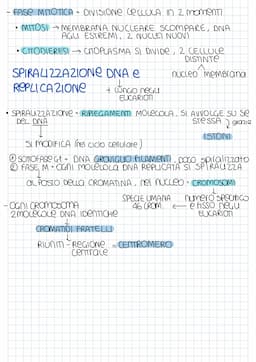 - FASE MITOTICA = DIVISIONE CELLULA IN 2 momenti
• MITOSI → MEMBRANA NUCLEARE SCOMPARE, DNA
AGLI ESTREMI, 2 NUCLEI NUOVI
• CITODIERESI → CITOPLASMA SI DIVIDE, 2 CELLULE
DISTINTE
nucleo membrana
SPIRALIZZAZIONE DNA e
REPLICAZIONE
+ lungo negli
EUCARIOTI
• SPIRALIZZAZIONE = RIPIEGAMENTI MOLECOLA, SI AVVOLGE SU SE
DEL DNA
STESSA grazie
ISTONI
SI MODIFICA (nel ciclo cellulare)
① SOTTOFASE G1 = DNA GROVIGLIO FILAMENTI, poco spiralizzato
② FASE M = OGNI MOLECOLA DNA REPLICATA SI SPIRALIZZA
al posto della CROMATINA, nel nucleo = CROMOSOMI
SPECIE UMANA
46 CROM. ← numero specifico
e fisso negli
EUCARIOTI
- OGNI CROMOSOMA
2 MOLECOLE DNA IDENTICHE
CROMATIDI FRATELLI
RIUNITI - REGIONE = CENTROMERO
centrale